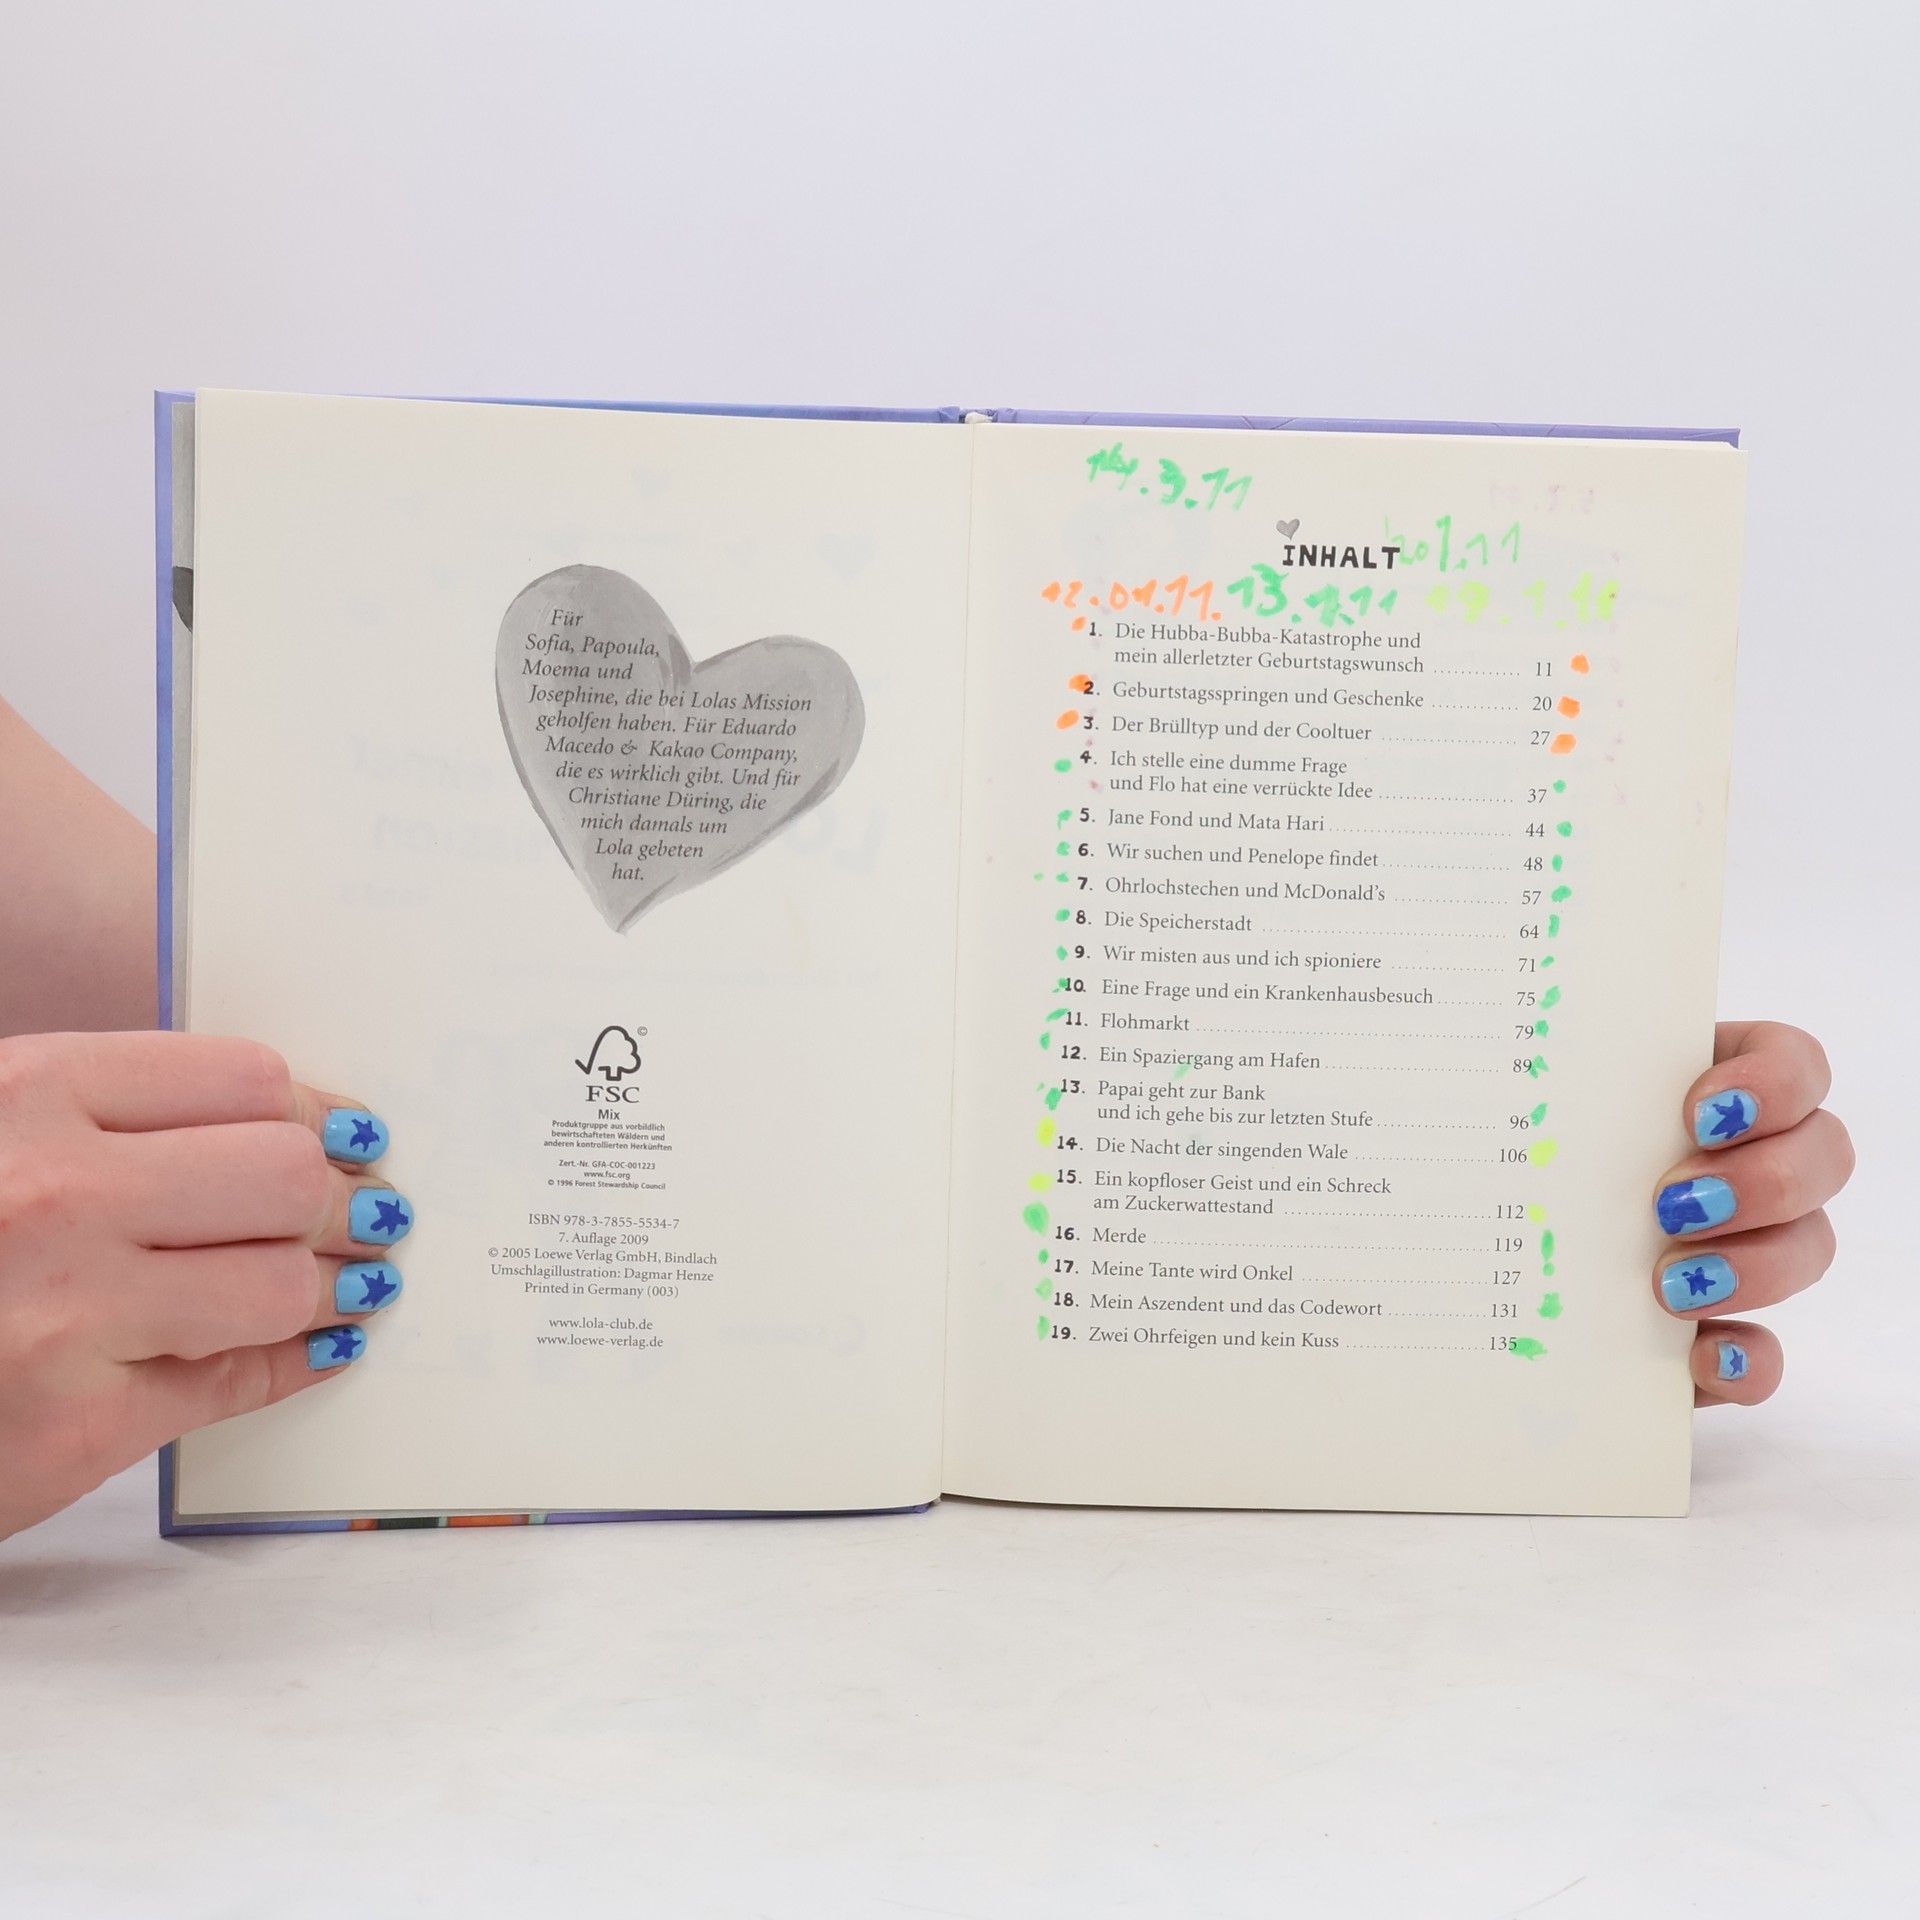 Für
Sofia, Papoula,
Moema und
Josephine, die bei Lolas Mission
geholfen haben. Für Eduardo
Macedo & Kakao Company,
die es wirklich gibt. Und für
Christiane Düring, die
mich damals um
Lola gebeten
hat.
©
FSC
Mix
Produktgruppe aus vorbildlich
bewirtschafteten Wäldern und
anderen kontrollierten Herkünften
Zert.-Nr. GFA-COC-001223
www.fsc.org
© 1996 Forest Stewardship Council
ISBN 978-3-7855-5534-7
7. Auflage 2009
© 2005 Loewe Verlag GmbH, Bindlach
Umschlagillustration: Dagmar Henze
Printed in Germany (003)
www.lola-club.de
www.loewe-verlag.de
14.3.11
INHALT
12.01.11. 13.1.11
1. Die Hubba-Bubba-Katastrophe und
mein allerletzter Geburtstagswunsch ............ 11
2. Geburtstagsspringen und Geschenke ............ 20
3. Der Brülltyp und der Cooltuer .................. 27
4. Ich stelle eine dumme Frage
und Flo hat eine verrückte Idee .................. 37
5. Jane Fond und Mata Hari ........................ 44
6. Wir suchen und Penelope findet ................. 48
7. Ohrlochstechen und McDonald's ............... 57
8. Die Speicherstadt ................................. 64
9. Wir misten aus und ich spioniere ............... 71
10. Eine Frage und ein Krankenhausbesuch ......... 75
11. Flohmarkt .......................................... 79
12. Ein Spaziergang am Hafen ....................... 89
13. Papai geht zur Bank
und ich gehe bis zur letzten Stufe ................ 96
14. Die Nacht der singenden Wale ................... 106
15. Ein kopfloser Geist und ein Schreck
am Zuckerwattestand ............................. 112
16. Merde ............................................... 119
17. Meine Tante wird Onkel ......................... 127
18. Mein Aszendent und das Codewort .............. 131
19. Zwei Ohrfeigen und kein Kuss .................. 135